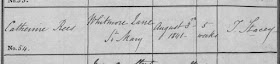 No. 53.
Catherine Rees
Whitmore Lane
St Mary
August 3d
1841.
5
weeks
T. Stacey
No. 54.